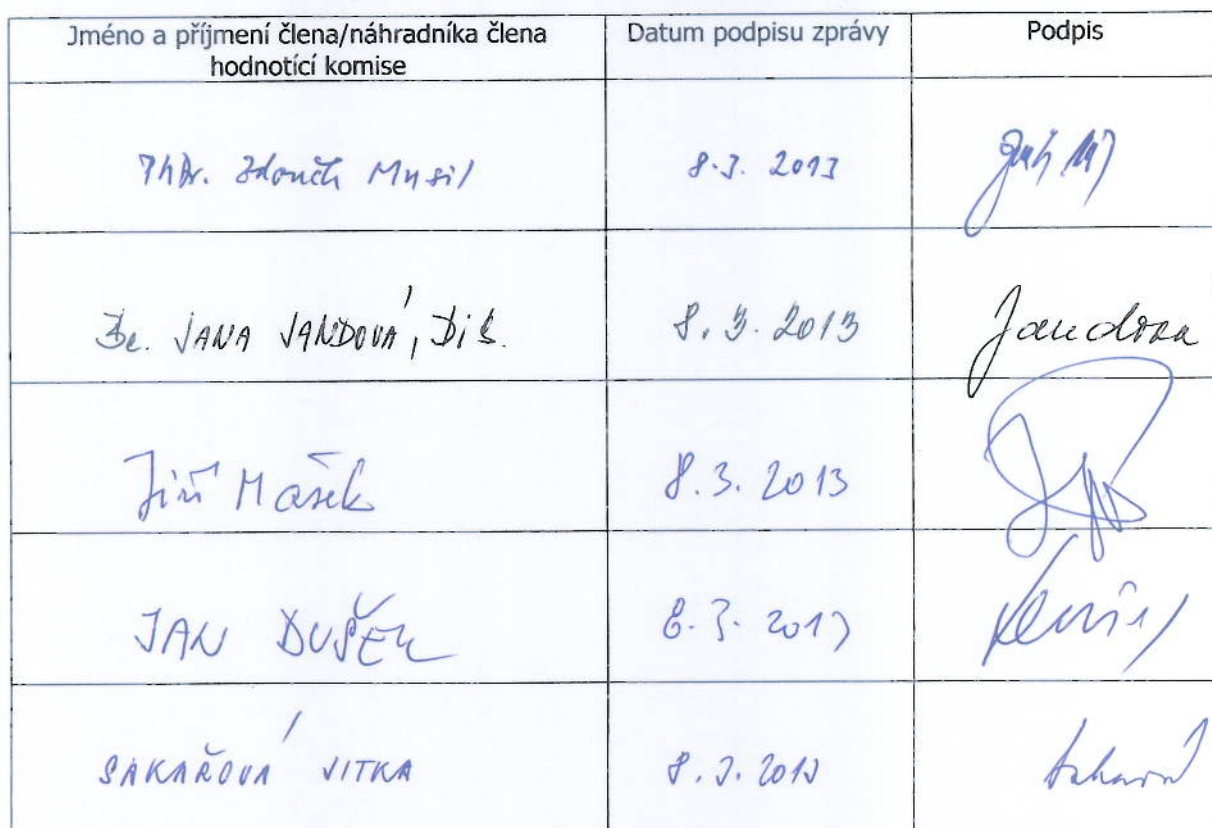 Jméno a příjmení člena/náhradníka člena
hodnotící komise
Datum podpisu zprávy
Podpis
PhDr. Zdeněk Musil
8.3. 2013
Bc. JANA JANDOVÁ, DiS.
8. 3. 2013
Jandova
Jiří Mašek
8.3. 2013
JAN DUŠEK
8.3. 2013
SAKAŘOVÁ JITKA
8.3.2013